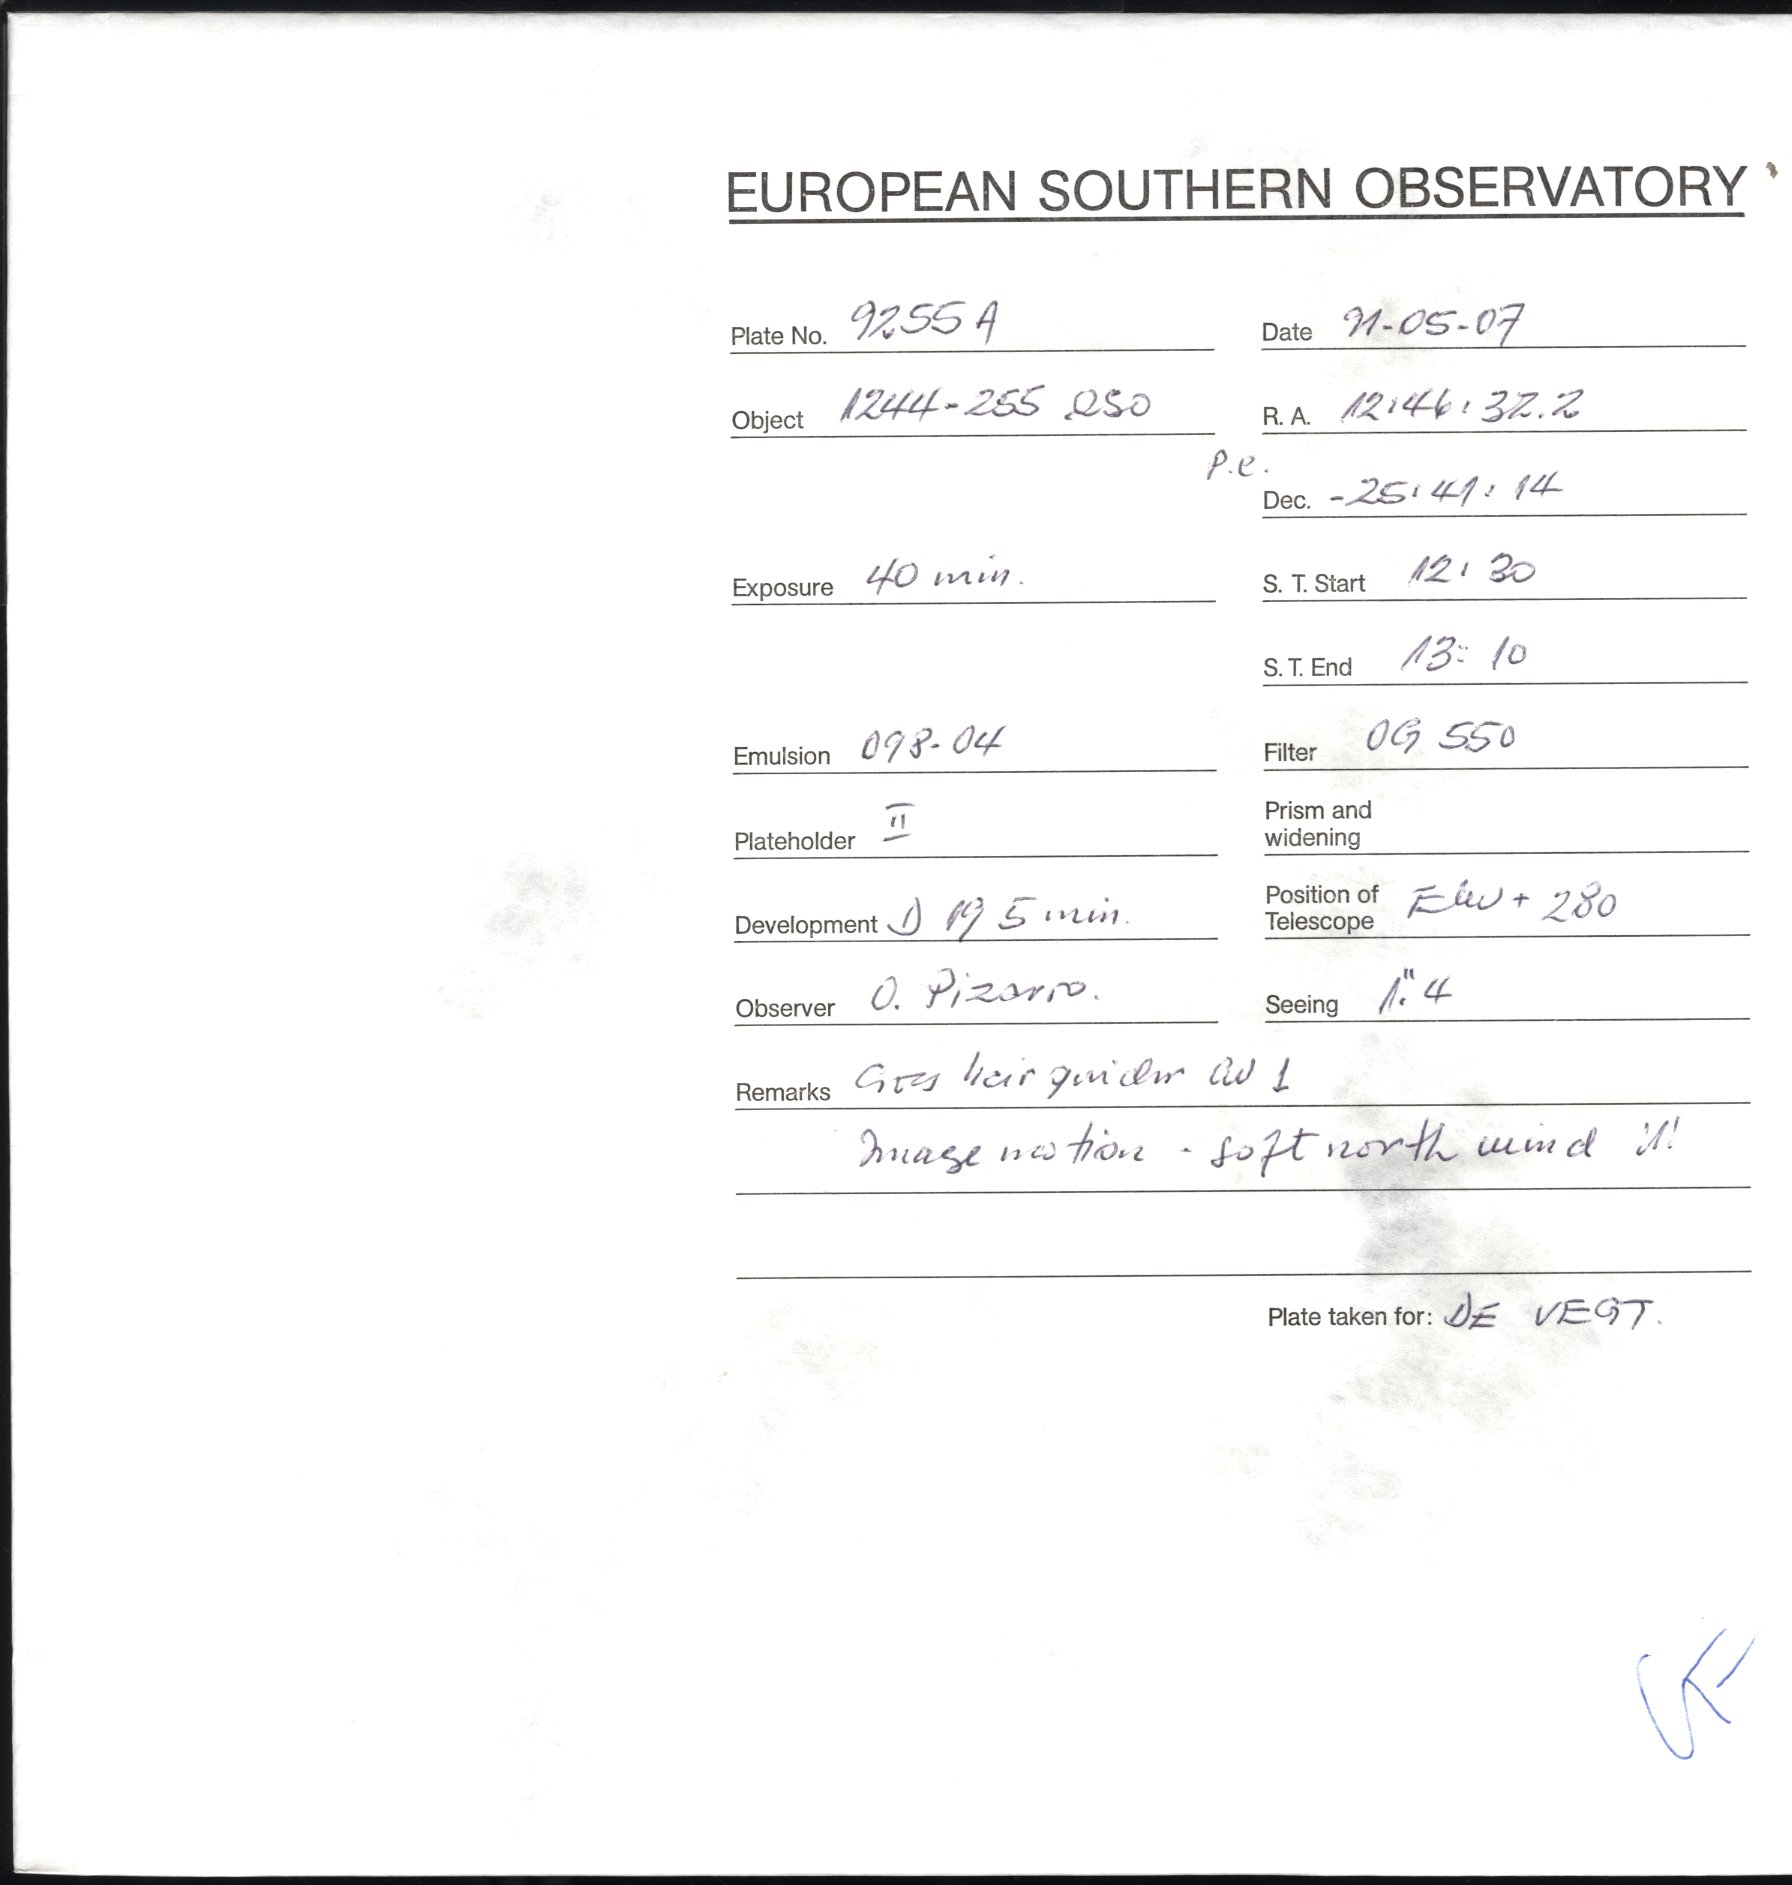 EUROPEAN SOUTHERN OBSERVATORY
Plate No. 9255A Date 91-05-07
Object 1244-255 QSO R. A. 12:46:32.2
P.e.
Dec. -25:41:14
Exposure 40 min. S. T. Start 12:30
S. T. End 13:10
Emulsion 098-04 Filter OG 550
Plateholder II Prism and
widening
Development D 19 5 min. Position of
Telescope + 280
Observer O. Pizarro. Seeing 1".4
Remarks hair guider 1
Image motion - soft north wind
Plate taken for: DE VEGT.